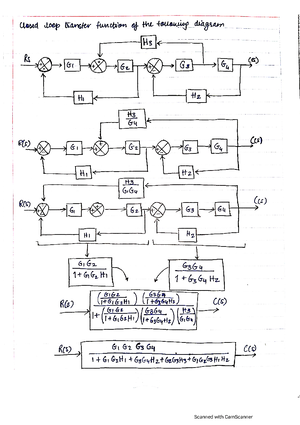 Closed Loop transfer function of the following diagram
H3
Rs G1 G2 G3 G4 C(s)
H1 H2
H3
G4
R(s) G1 G2 G3 G4 C(s)
H1 H2
H3
G1G4
R(s) G1 G2 G3 G4 C(s)
H1 H2
G1G2
1+G1G2H1
G3G4
1+G3G4H2
R(s) (G1G2 / 1+G1G2H1) (G3G4 / 1+G3G4H2) C(s)
1+(G1G2 / 1+G1G2H1) (G3G4 / 1+G3G4H2) (H3 / G1G4)
R(s) G1 G2 G3 G4 C(s)
1+G1G2H1+G3G4H2+G2G3H3+G1G2G3G4H1H2
Scanned with CamScanner